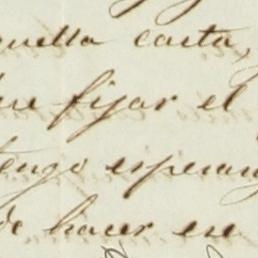 quella carta,
que fijar el
tengo esperan
de hacer en